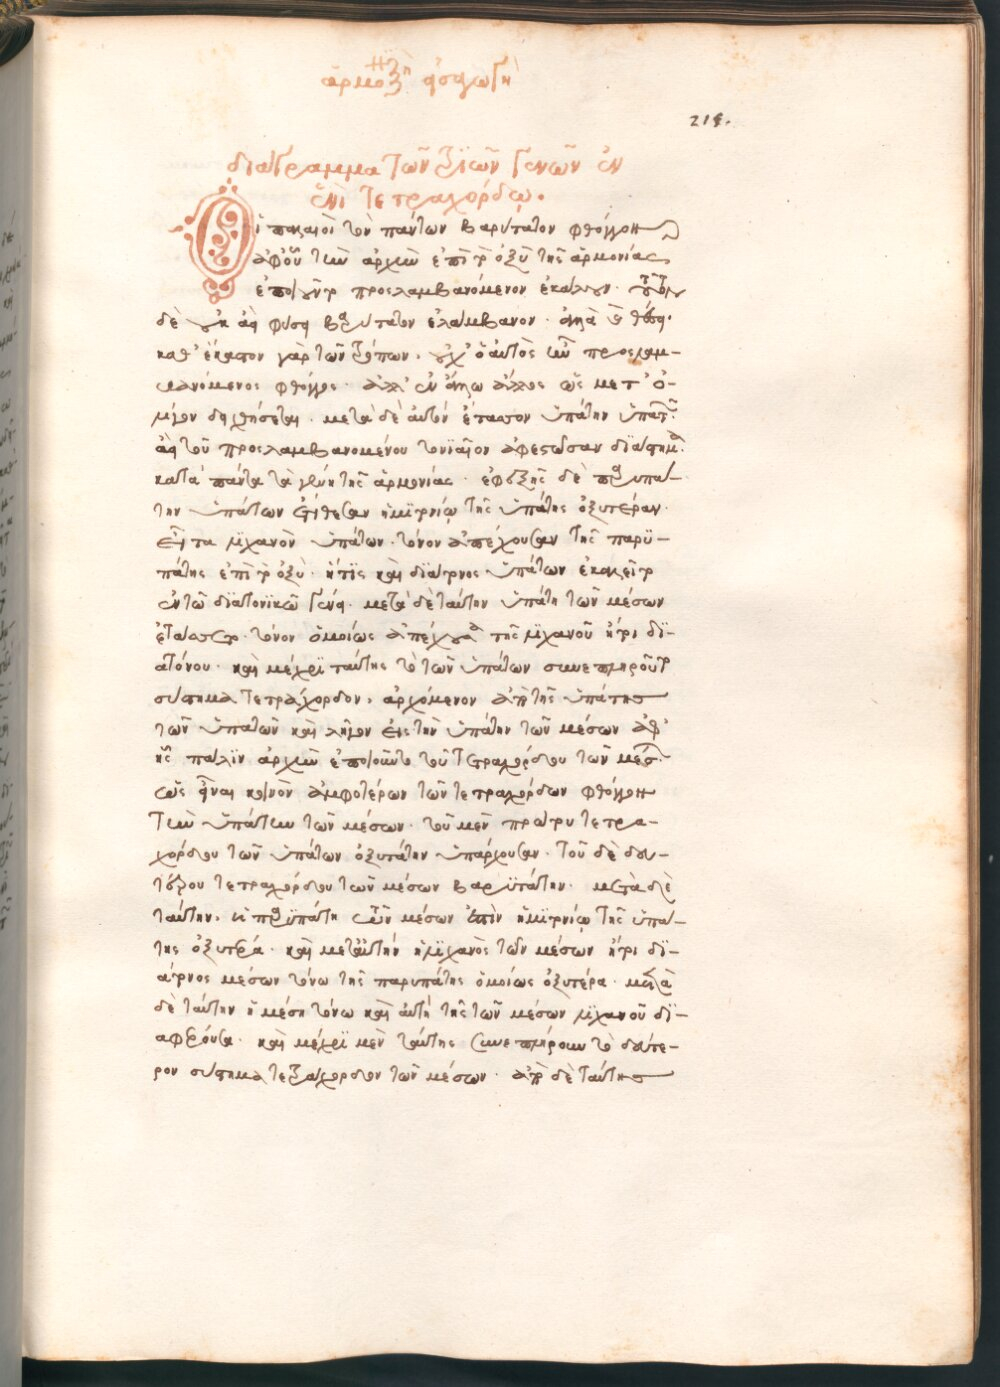 ἁρμονικὴ εἰσαγωγὴ
215.
διάγραμμα τῶν τριῶν γενῶν ἐν
ἑνὶ τετραχόρδῳ.
Οἱ παλαιοὶ τὸν πάντων βαρύτατον φθόγγον
ἀφ' οὗ τὴν ἀρχὴν ἐπὶ τὸ ὀξὺ τῆς ἁρμονίας
ἐποιοῦντο προσλαμβανόμενον ἐκάλουν.
δὲ οὐκ ἀεὶ φύσει βαρύτατον ἐλάμβανον. ἀλλὰ θέσει.
καθ' ἕκαστον γὰρ τῶν τρόπων. οὐχ' ὁ αὐτὸς ἦν προσλαμ-
βανόμενος φθόγγος. ἀλλ' ἐν ἄλλω ἄλλος ὡς μετ' ὀ-
λίγον δειχθήσεται. μετὰ δὲ αὐτόν ἔτασσον ὑπάτην ὑπατῶν
ἀεὶ τοῦ προσλαμβανομένου τονιαῖον ἀφεστῶσαν διάστημα.
κατὰ πάντα τὰ γένη τῆς ἁρμονίας. ἐφεξῆς δὲ παρυπά-
την ὑπάτων ἐτίθεσαν ἡμιτονίῳ τῆς ὑπάτης ὀξυτέραν.
εἶτα λιχανὸν ὑπάτων. τόνον ἀπέχουσαν τῆς παρυ-
πάτης ἐπὶ τὸ ὀξὺ. ἥτις καὶ διάτονος ὑπάτων ἐκαλεῖτο
ἐν τῶ διατονικῶ γένει. μετὰ δὲ ταύτην ὑπάτη τῶν μέσων
ἐτάσσετο. τόνον ὁμοίως ἀπέχουσα τῆς λιχανοῦ ἤτοι δι-
ατόνου. καὶ μέχρι ταύτης τὸ τῶν ὑπάτων συνεπληροῦτο
σύστημα τετράχορδον. ἀρχόμενον ἀπὸ τῆς ὑπάτης
τῶν ὑπατῶν καὶ λῆγον εἰς τὴν ὑπάτην τῶν μέσων ἀφ'
ἧς πάλιν ἀρχὴν ἐποιοῦντο τοῦ τετραχόρδου τῶν μέσων.
ὡς εἶναι κοινὸν ἀμφοτέρων τῶν τετραχόρδων φθόγγον
τὴν ὑπάτην τῶν μέσων. τοῦ μὲν πρώτου τετρα-
χόρδου τῶν ὑπάτων ὀξυτάτην ὑπάρχουσαν. τοῦ δὲ δευ-
τέρου τετραχόρδου τῶν μέσων βαρυτάτην. μετὰ δὲ
ταύτην. ἡ παρυπάτη τῶν μέσων ἐστὶν ἡμιτονίῳ τῆς ὑπά-
της ὀξυτέρα. καὶ μετ' αὐτὴν ἡ λιχανὸς τῶν μέσων ἤτοι δι-
άτονος μέσων τόνω τῆς παρυπάτης ὁμοίως ὀξυτέρα. μετὰ
δὲ ταύτην ἡ μέση τόνω καὶ αὐτὴ τῆς τῶν μέσων λιχανοῦ δι-
αφέρουσα. καὶ μέχρι μὲν ταύτης συνεπλήρουν τὸ δεύτε-
ρον σύστημα τετράχορδον τῶν μέσων. ἀπὸ δὲ ταύτης